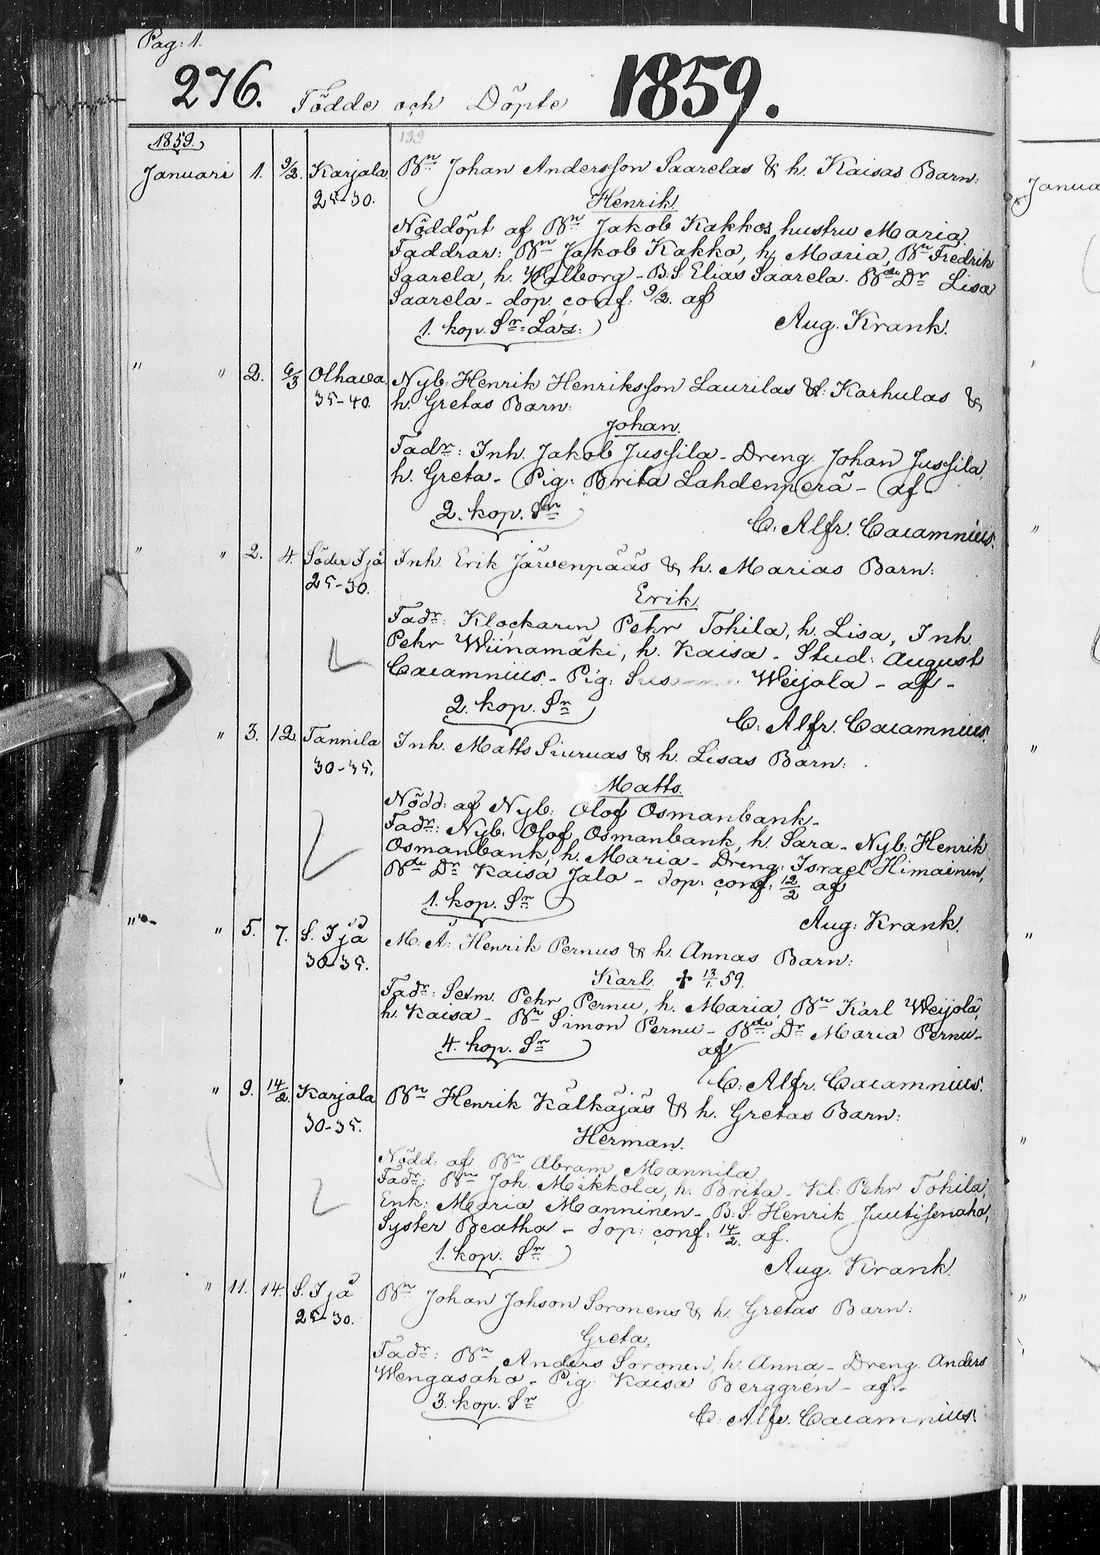 Pag: 1.
276. Födde och Döpte 1859.
1859.
Januari 1. 9/2. Karjala 25-30. Bn Johan Andersson Saarelas & h. Kaisas Barn:
Henrik
Nöddöpt af Bn Jakob Kakkos hustru Maria.
Faddrar: Bn Jakob Kakko, h. Maria, Bn Fredrik
Saarela, h. Walborg - B.S. Elias Saarela. Bde Dr Lisa
Saarela - dop. conf. 9/2. af
1. kop. Sr. Lars. Aug. Krank.
" " 2. 6/3 Olhava 35-40. Nyb: Henrik Henriksson Laurilas &: Karhulas &
h. Gretas Barn:
Johan.
Fadr: Inh. Jakob Jussila - Dreng Johan Jussila
h. Greta - Pig: Brita Lahdenperä - af -
2. kop. Sr C. Alfr. Cajamnius.
" " 2. 4. Söder Ijå 25-30. Inh. Erik Järvenpääs & h. Marias Barn:
Erik.
Fadr: Klockaren Pehr Tokila, h. Lisa, Inh
Pehr Wiinamäki, h. Kaisa - Stud: August
Cajamnius - Pig: Weijola - af -
2. kop. Sr C. Alfr. Cajamnius
" 3. 12. Tannila 30-35. Inh. Matts Siuruas & h. Lisas Barn:
Matts.
Nödd: af Nyb: Olof Osmanbank -
Fadr: Nyb: Olof Osmanbank, h. Sara - Nyb: Henrik
Osmanbank, h. Maria - Dreng: Israel Himainen,
Bde Dr Kaisa Jala - dop: conf: 12/2 af
1. kop. Sr Aug: Krank.
" " 5. 7. S. Ijå 30-35. M. Å: Henrik Pernus & h. Annas Barn:
Karl. + 13/1 59.
Fadr: Sexm. Pehr Pernu, h. Maria, Bn Karl Weijola,
h. Kaisa - Bn Simon Pernu - Bde Dr Maria Pernu -
4. kop. Sr af
C. Alfr. Cajamnius
" 9. 14/2. Karjala 30-35. Bn Henrik Kälkäjäs & h. Gretas Barn:
Herman.
Nödd: af Bn Abram Mannila
Fadr: Bn Joh. Mikkola, h. Brita - Kl: Pehr Tokila,
Enk: Maria Manninen - B.S. Henrik Juutissenaho,
Syster Beatha - dop: conf: 14/2. af.
1. kop. Sr Aug. Krank.
" " 11. 14. S. Ijå 25-30. Bn Johan Johson Soronens & h. Gretas Barn:
Greta.
Fadr: Bn Anders Soronen, h. Anna - Dreng Anders
Wengasaho - Pig: Kaisa Berggrén - af -
3. kop. Sr C. Alfr. Cajamnius.
Janua